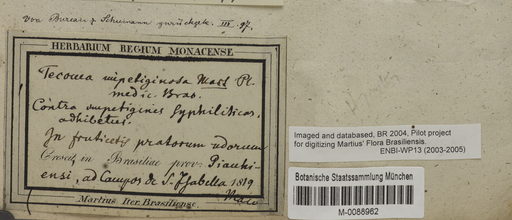 Von Bureau & Schumann zurückgek. III. 97.
HERBARIUM REGIUM MONACENSE
Tecoma impetiginosa Mart Pl.
medic. Bras.
Contra impetigines syphiliticas,
adhibetur.
In fruticetis pratorum udorum
Crescit in Brasiliae prov. Piauhi-
ensi, ad Campos de S. Isabella 1819
Majo
Martius Iter Brasiliense.
Imaged and databased, BR 2004, Pilot project
for digitizing Martius' Flora Brasiliensis.
ENBI-WP13 (2003-2005)
Botanische Staatssammlung München
M-0088962